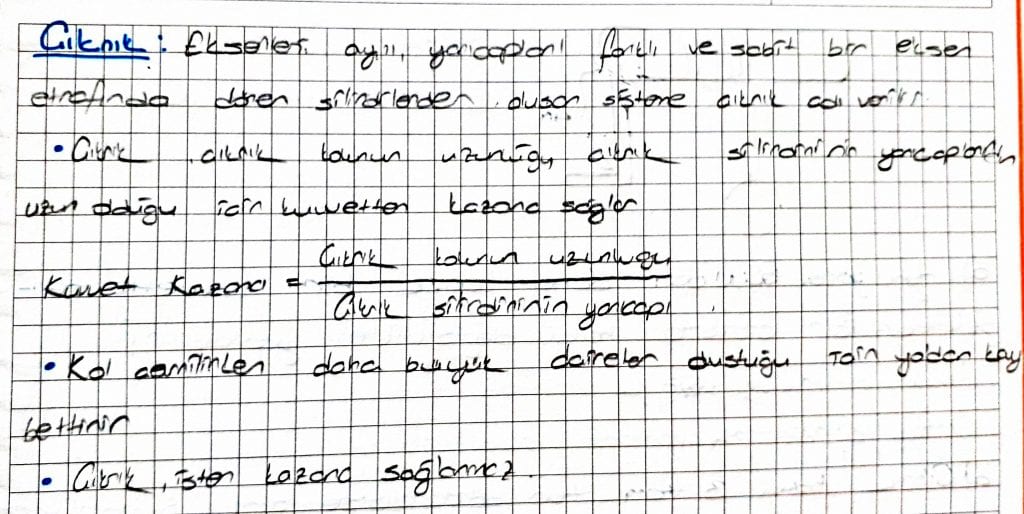 Çıkrık : Eksenleri aynı, yarıçapları farklı ve sabit bir eksen
etrafında dönen silindirlerden oluşan sisteme çıkrık adı verilir.
• Çıkrık, çıkrık kolunun uzunluğu, çıkrık silindirinin yarıçapından
uzun olduğu için kuvvetten kazanç sağlar
Kuvvet Kazancı = Çıkrık kolunun uzunluğu
Çıkrık silindirinin yarıçapı
• Kol çevrilirken daha büyük daireler oluştuğu için yoldan kay
bettirir
• Çıkrık, işten kazanç sağlamaz.